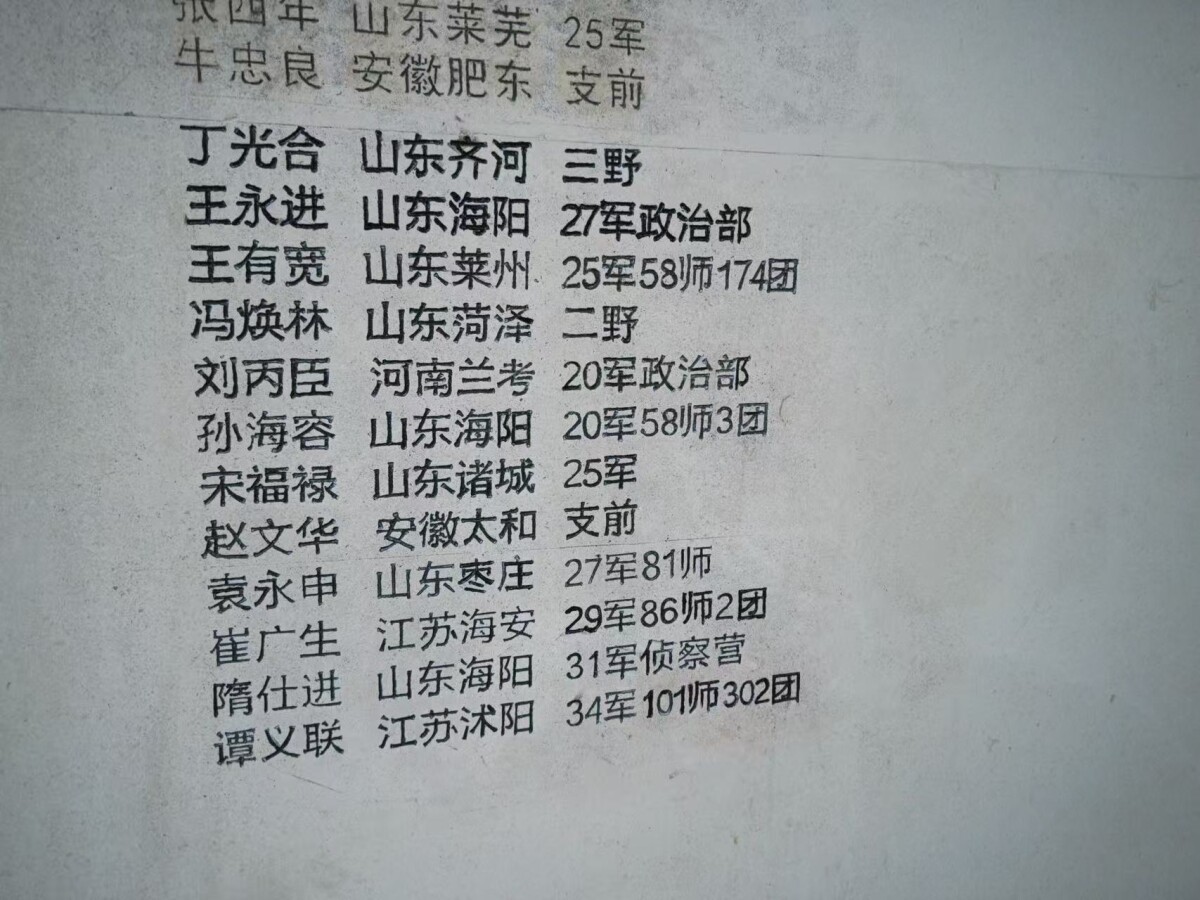 张四年 山东莱芜 25军
牛忠良 安徽肥东 支前
丁光合 山东齐河 三野
王永进 山东海阳 27军政治部
王有宽 山东莱州 25军58师174团
冯焕林 山东菏泽 二野
刘丙臣 河南兰考 20军政治部
孙海容 山东海阳 20军58师3团
宋福禄 山东诸城 25军
赵文华 安徽太和 支前
袁永申 山东枣庄 27军81师
崔广生 江苏海安 29军86师2团
隋仕进 山东海阳 31军侦察营
谭义联 江苏沭阳 34军101师302团